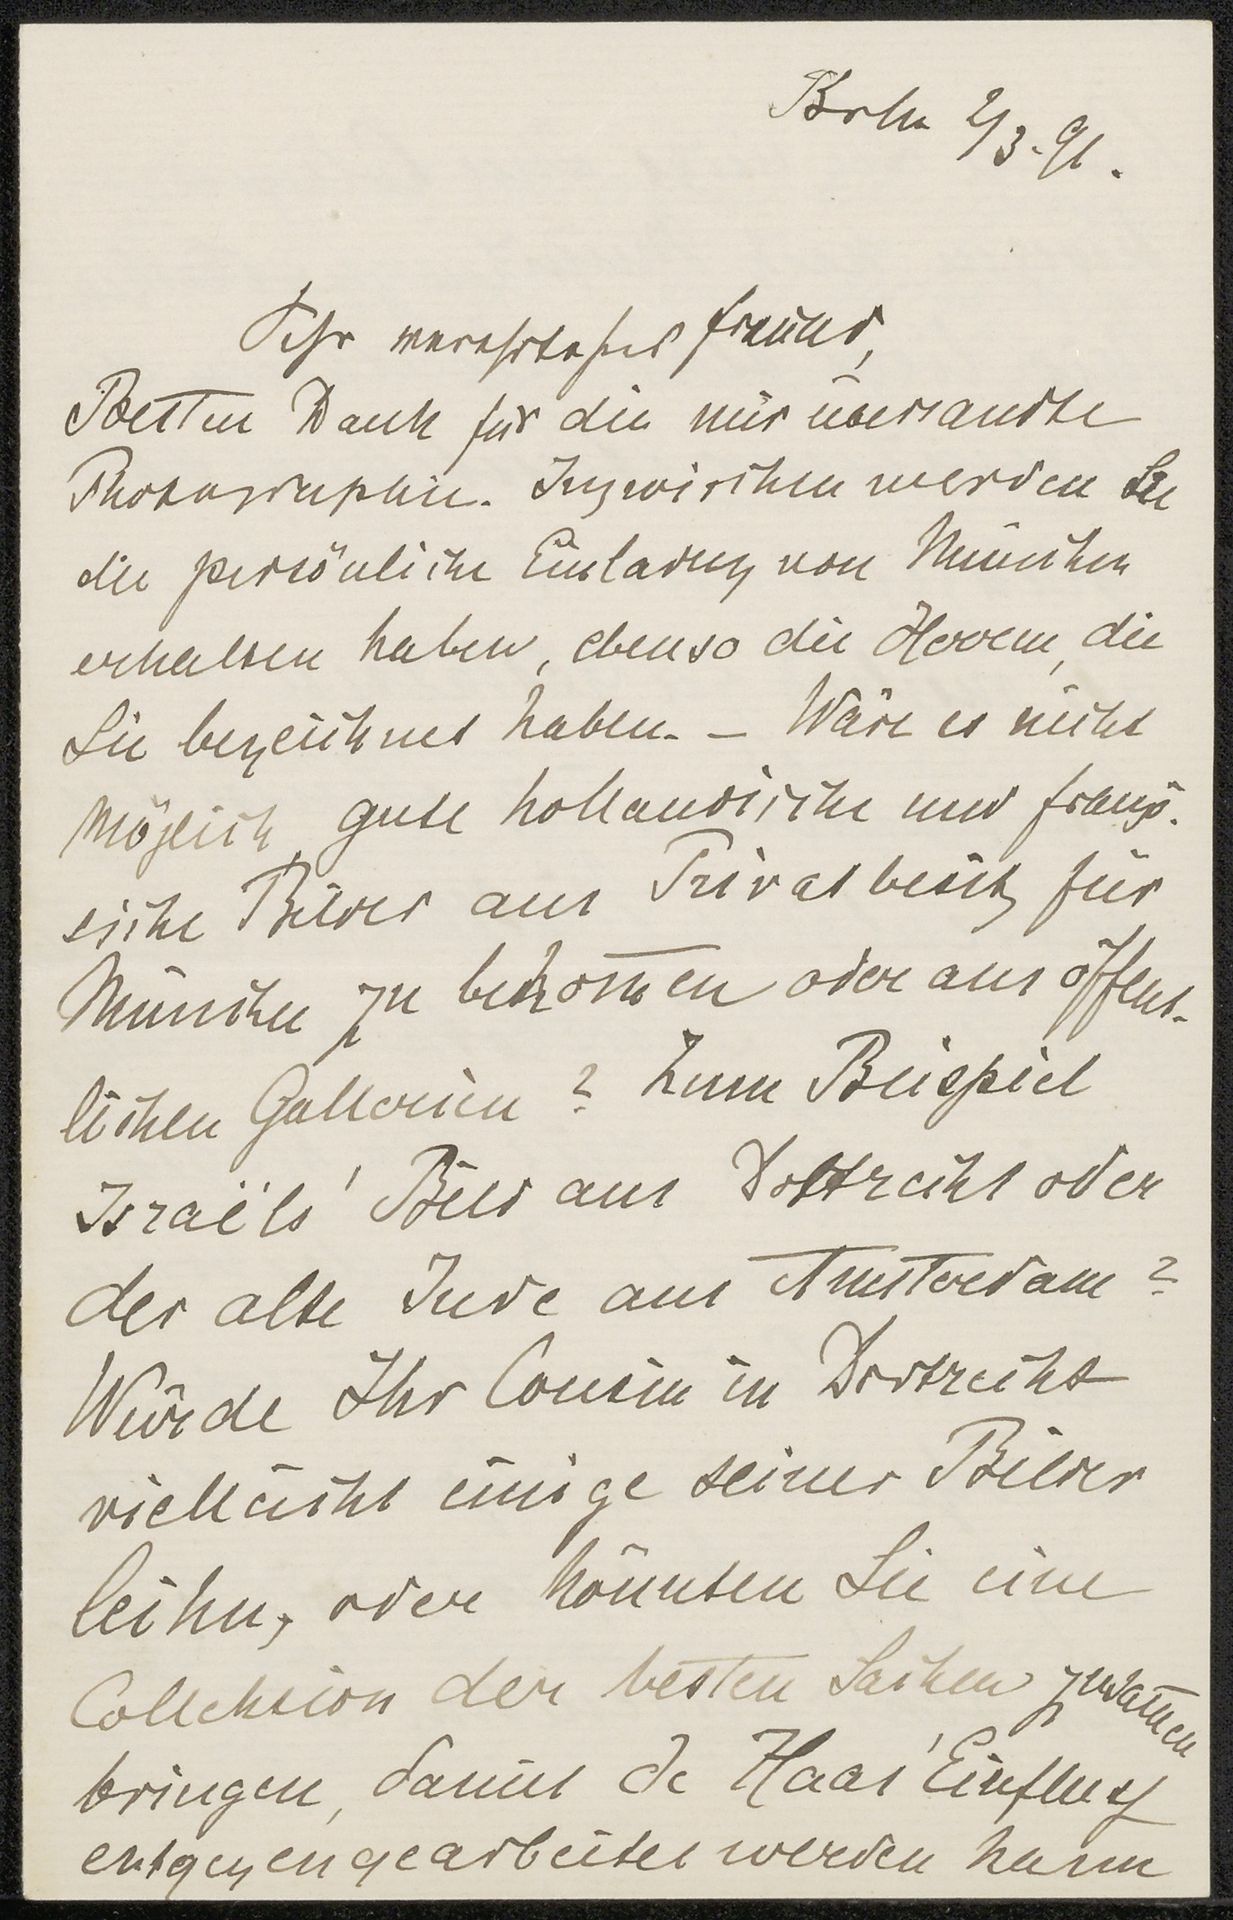 Berlin 2/3. 91.
Sehr verehrtester Freund,
Besten Dank für die mir übersandte
Photographie. Inzwischen werden Sie
die persönliche Einladung von München
erhalten haben, ebenso die Herren, die
Sie bezeichnet haben. – Wäre es nicht
möglich gute holländische und franzö-
sische Bilder aus Privatbesitz für
München zu bekom̅en oder aus öffent-
lichen Gallerien? Zum Beispiel
Israëls' Bild aus Dortrecht oder
der alte Jude aus Amsterdam?
Würde Ihr Cousin in Dortrecht
vielleicht einige seiner Bilder
leihn, oder könnten Sie eine
Collektion der besten Sachen zusam̅en
bringen, damit de Haas' Einfluss
entgegengearbeitet werden kann